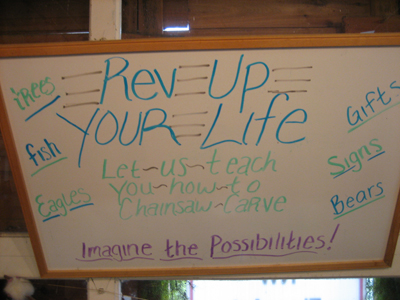 Rev Up
YOUR Life
Let~us~teach
you~how~to
Chainsaw~Carve
Imagine the Possibilities!
trees
fish
Eagles
Gifts
Signs
Bears